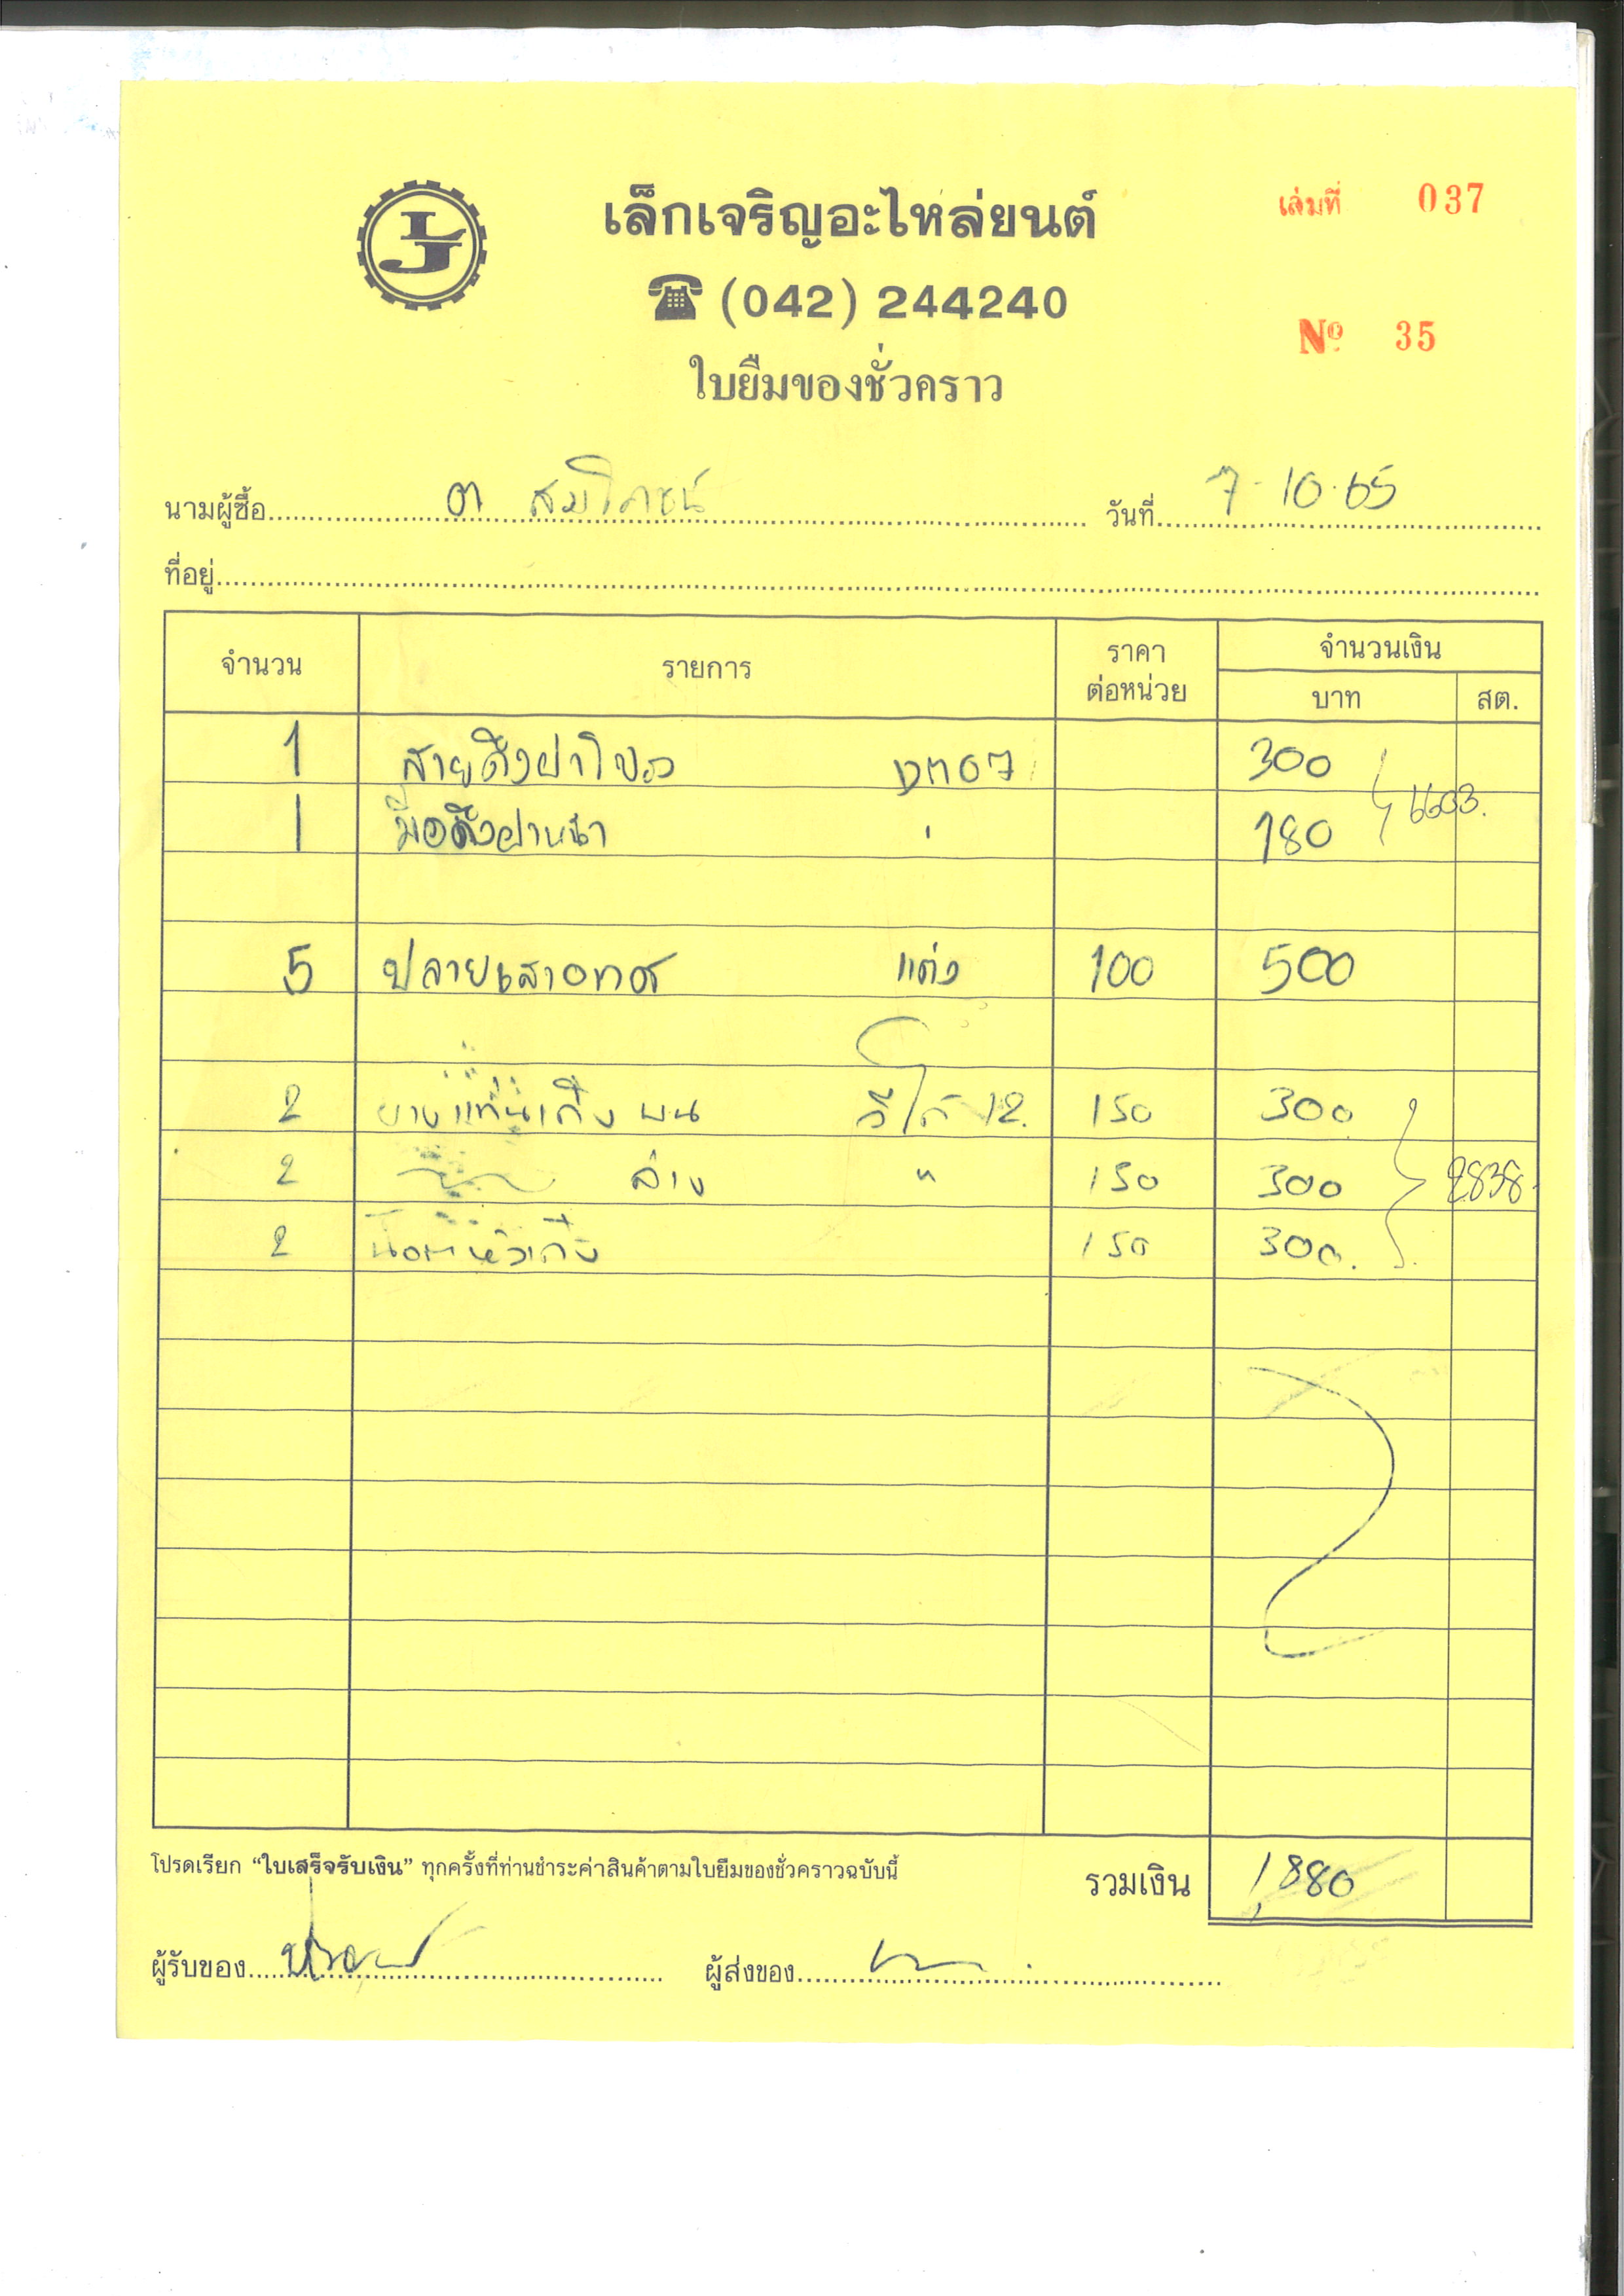 เล็กเจริญอะไหล่ยนต์
เล่มที่ 037
(042) 244240
Nº 35
ใบยืมของชั่วคราว
นามผู้ซื้อ ต สมโภชน์ วันที่ 7-10-65
ที่อยู่
จำนวน รายการ ราคาต่อหน่วย จำนวนเงิน
บาท สต.
1 สายดึงฝาโปรง 300
6603.
1 มือดึงฝาหน้า 180
5 ปลายเสาอากาศ แต่ง 100 500
2 ยางแท่นเก๋ง บน วีโก้ 12 150 300
2 ล่าง " 150 300 2838
2 น๊อตหัวเก๋ง 150 300.
โปรดเรียก “ใบเสร็จรับเงิน” ทุกครั้งที่ท่านชำระค่าสินค้าตามใบยืมของชั่วคราวฉบับนี้
รวมเงิน 1,880
ผู้รับของ ผู้ส่งของ